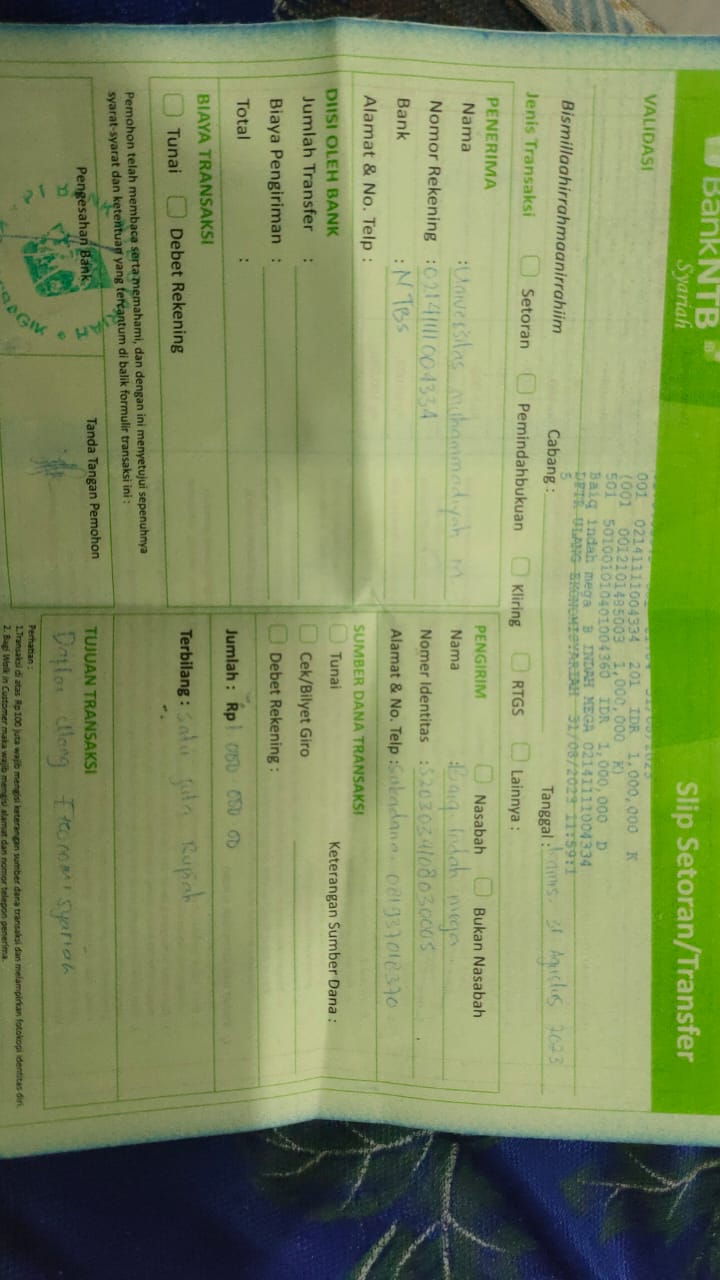 BankNTB
Syariah
Slip Setoran/Transfer
VALIDASI
31/08/2023
001 02141111004334 201 IDR 1,000,000 K
(001 0012101495003 1,000,000 K)
501 501001010401004360 IDR 1,000,000 D
Baiq indah mega B INDAH MEGA 02141111004334
DFTR ULANG EKONOMISYARIAH 31/08/2023 11:59:1
5
Bismillaahirrahmaanirrahiim
Cabang :
Tanggal : Kamis, 31 Agustus 2023
Jenis Transaksi Setoran Pemindahbukuan Kliring RTGS Lainnya :
PENERIMA
Nama : Universitas Muhammadiyah M
Nomor Rekening : 02141111004334
Bank : NTBS
Alamat & No. Telp :
PENGIRIM Nasabah Bukan Nasabah
Nama : Baiq Indah mega
Nomer Identitas : 5203034108030005
Alamat & No. Telp : Sukadana. 081937018370
DIISI OLEH BANK
Jumlah Transfer :
Biaya Pengiriman :
Total :
SUMBER DANA TRANSAKSI
Tunai Keterangan Sumber Dana :
Cek/Bilyet Giro
Debet Rekening :
BIAYA TRANSAKSI
Tunai Debet Rekening
Jumlah : Rp 1 000 000 00
Terbilang : Satu Juta Rupiah
Pemohon telah membaca serta memahami, dan dengan ini menyetujui sepenuhnya
syarat-syarat dan ketentuan yang tercantum di balik formulir transaksi ini :
Pengesahan Bank
Tanda Tangan Pemohon
TUJUAN TRANSAKSI
Daftar Ulang Ekonomi Syariah
Perhatian :
1.Transaksi di atas Rp 100 juta wajib mengisi keterangan sumber dana transaksi dan melampirkan fotokopi identitas diri.
2. Bagi Walk in Customer maka wajib mengisi alamat dan nomor telepon penerima.